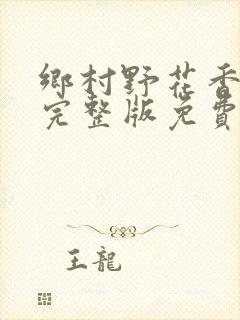 鄉村野花香
完整版免費
王龍